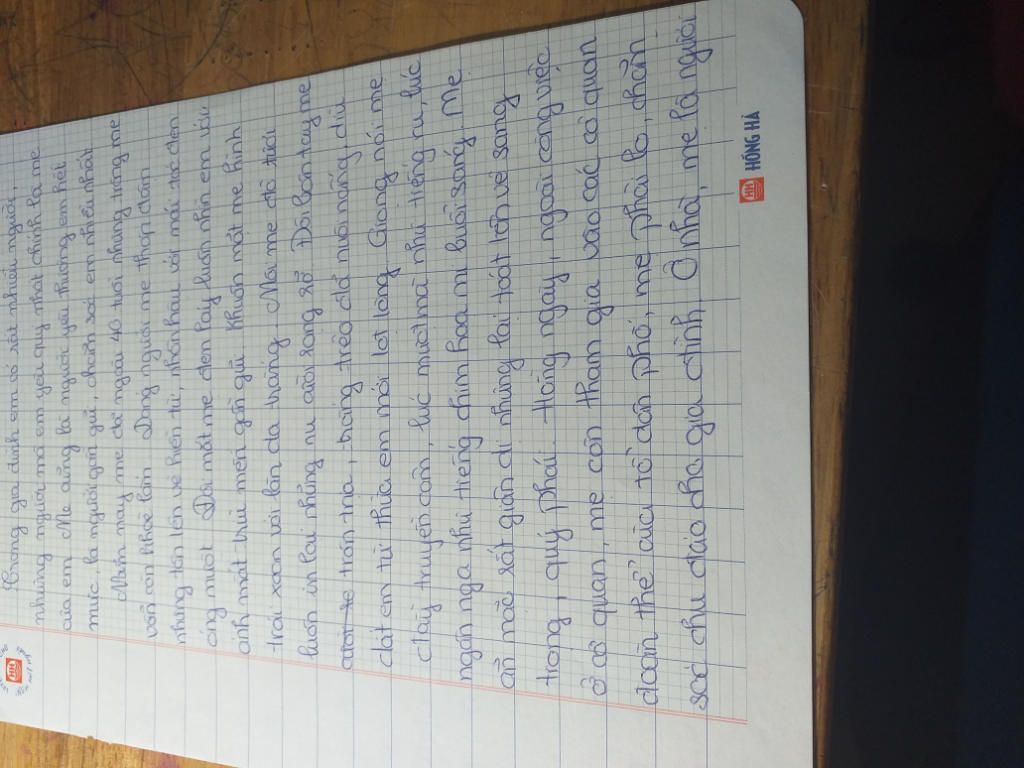 Trong gia đình em có rất nhiều người,
những người mà em yêu quý nhất chính là mẹ
của em. Mẹ cũng là người yêu thương em hết
mực, là người gần gũi, chăm sóc em nhiều nhất
Năm nay mẹ đã ngoài 40 tuổi nhưng trông mẹ
vẫn còn khoẻ lắm. Dáng người mẹ thấp đậm
nhưng toán lên vẻ hiền từ, nhân hậu với mái tóc đen
óng mượt. Đôi mắt mẹ đen láy luôn nhìn em với
ánh mắt trìu mến gần gũi. Khuôn mặt mẹ hình
trái xoan với làn da trắng. Môi mẹ đỏ tươi
luôn in lại những nụ cười rạng rỡ. Đôi bàn tay mẹ
tròn trịa, trắng trẻo đã nuôi nấng, dìu
dắt em từ thủa em mới lọt lòng. Giọng nói mẹ
đầy truyền cảm, lúc mượt mà như tiếng ru, lúc
ngân nga như tiếng chim hoạ mi buổi sáng. Mẹ
ăn mặc rất giản dị nhưng lại toát lên vẻ sang
trọng, quý phái. Hằng ngày, ngoài công việc
ở cơ quan, mẹ còn tham gia vào các cơ quan
đoàn thể" của tổ dân phố, mẹ phải lo, chăm
sóc chu đáo cho gia đình. Ở nhà, mẹ là người
HH HỒNG HÀ